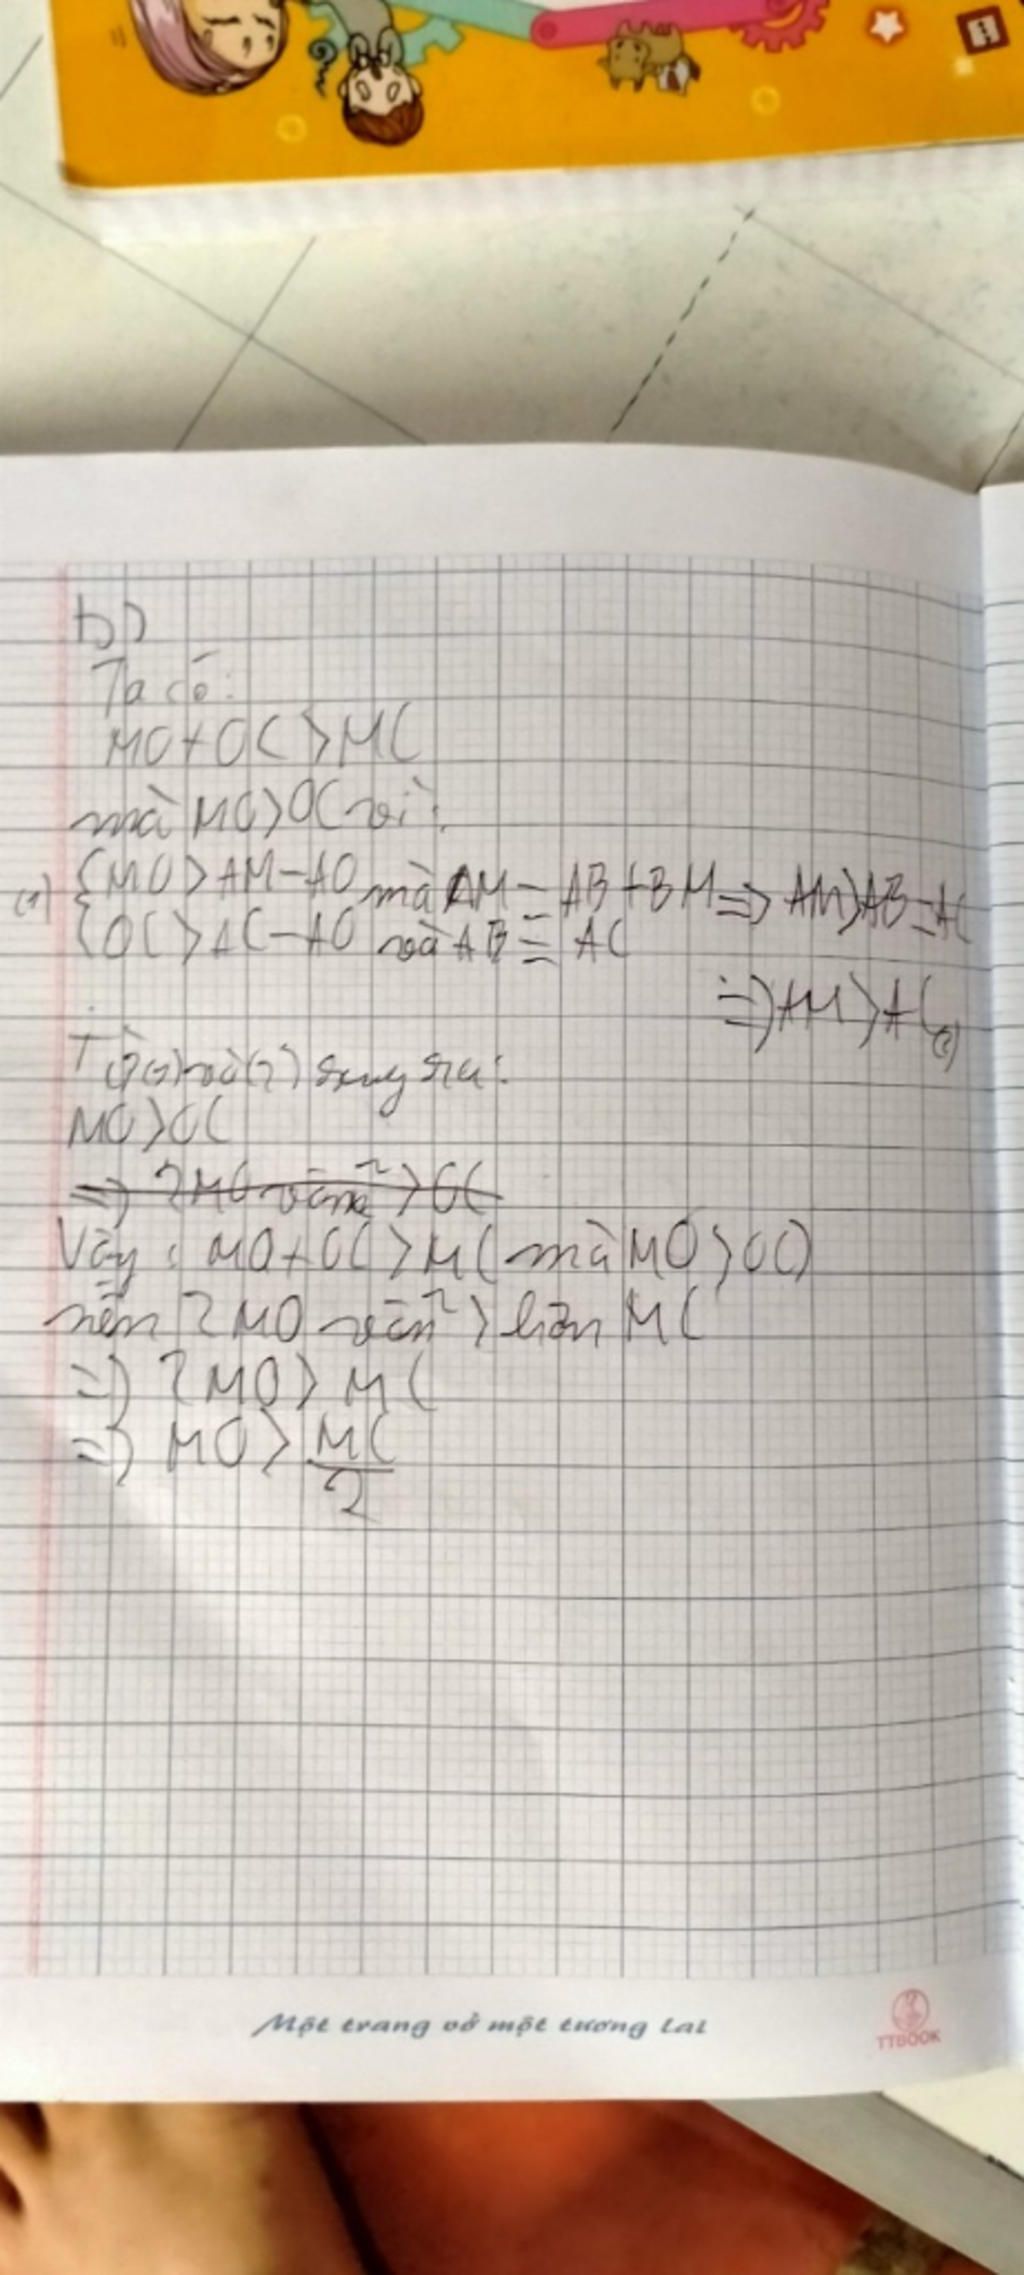 b)
Ta có:
MO+OC>MC
mà MO>OC vì:
(1) {MO>AM-AO mà AM = AB+BM => AM>AB=AC
{OC>AC-AO và AB = AC
=> AM>AC (2)
Từ (1) và (2) suy ra:
MO>OC
=> 2MO vẫn > OC
Vậy: MO+OC>MC mà MO>OC)
nên 2MO vẫn > hơn MC
=> 2MO>MC
=> MO> MC/2
Một trang vở một tương lai
TTBOOK